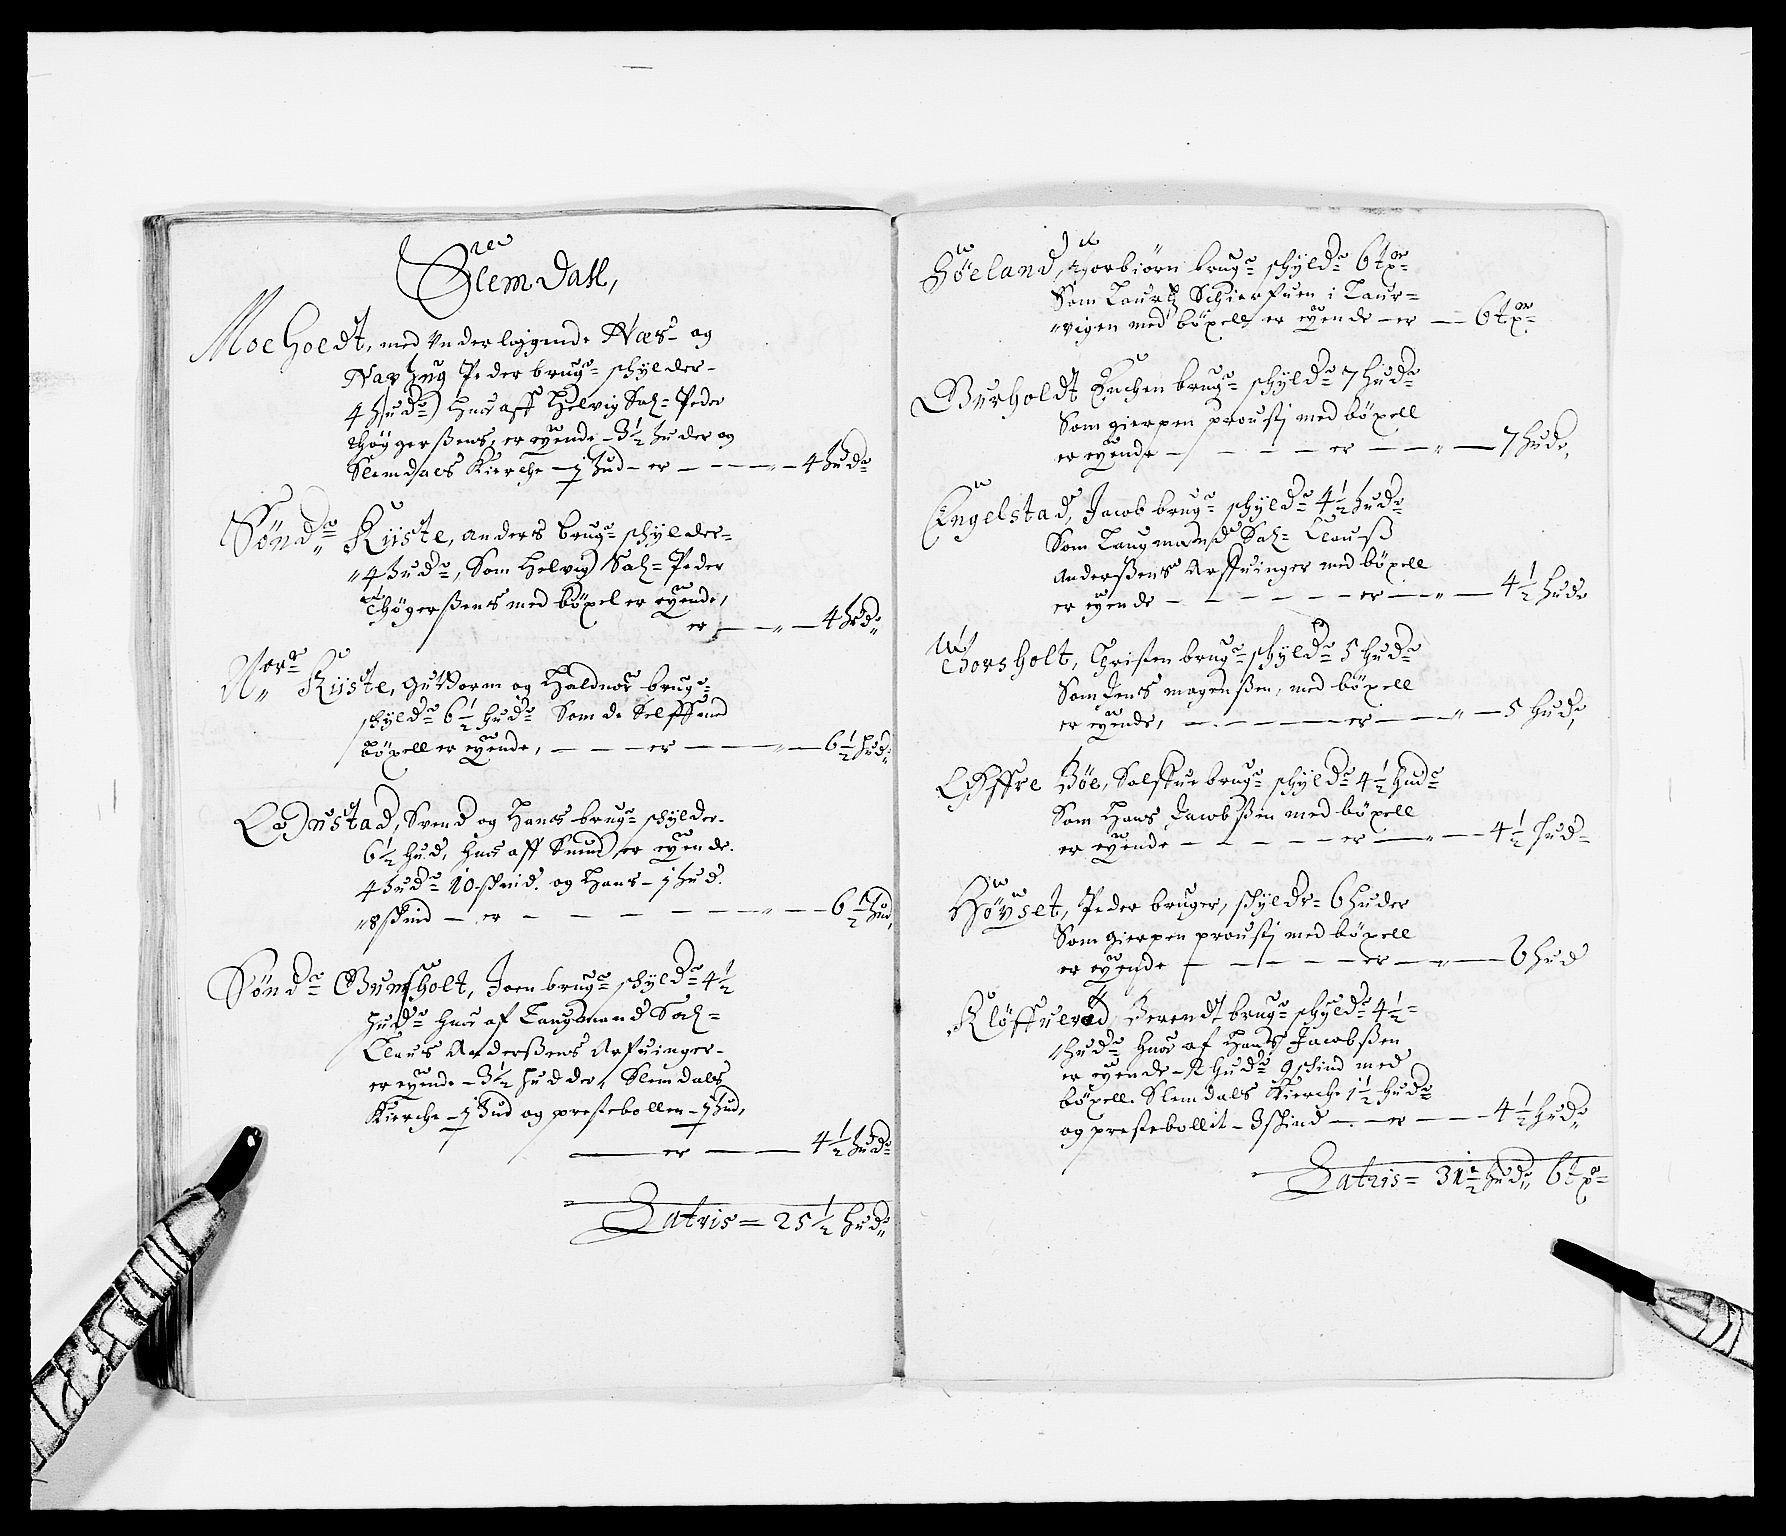 Slemdall,
Moeholdt, med underliggende Næs- og
Peder brug= schylder-
4 hud) huor aff Helvig Sal= Peder
Thögerßens, er eyende - 3½ huder og
Slemdals Kierche - j hud - er - - - 4 hud=
Sönd= Riiste, anders brug= schylder=
4 hud=, Som Helvig Sal= Peder
Thögerßens med böxel er eyende,
er - - 4 hud=
Nor= Riiste, Guttorm og Halduor brug=
schyld= 6½ hud= Som de Selff med
böxell er eyende, - - er - - 6½ hud=
Svend og Hans brug= schylder-
6½ hud, huor aff Suend er eyende
4 hud= 10 schind. og Hans - j hud.
8 schind - er - - - 6½ hud,
Sönd= Joen brug= schyld= 4½
hud= huor af Laugmand Sal=
Claus Anderßens Arfuinger-
er eyende - 3½ hudder, Slemdals
Kierche - j hud og prestebollen - j hud,
- er - 4½ hud=
Latris = 25½ hud=
Höeland, Torbiörn brug= schyld= 6 tx=
Som Lauritz Schierfuen i Laur=
vigen med böxell er eyende - er - 6 tx=
brug= schyld= 7 hud=
Som gierpen proustj med böxell
er eyende - - - er - - 7 hud,
Engelstad, Jacob brug= schyld= 4½ hud=
Som Laugmand Sal= Clauß
Anderßens Arffuinger med böxell
er eyende - - - er - - 4½ hud
Torsholt, Christen brug= schyld= 5 hud=
Som Jens mogenßen, med böxell
er eyende, - - - er - - 5 hud,
Öffre Böe, brug= schyld= 4½ hud=
Som Hans Jacobßen med böxell
er eyende - - - er - - 4½ hud=
Höyset, Peder bruger, schyldr- 6 huder
Som gierpen proustj med böxell
er eyende - - - er - - 6 hud
Klöffuerød Berendt brug= schyld= 4½=
hud= huor af Hans Jacobßen
er eyende - 2 hud= 9 schind med
böxell. Slemdals Kierche 1½ hud=
og prestebollit - 3 schind - - er - - 4½ hud=
Latris = 31½ hud= 6 tx=